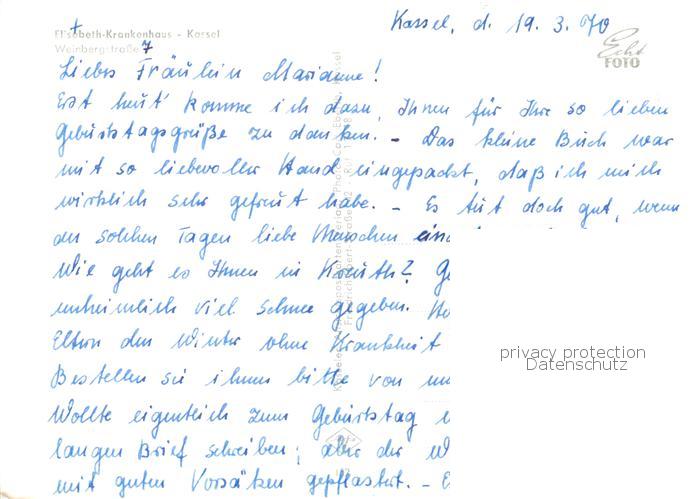 Elisabeth-Krankenhaus - Kassel
Weinbergstraße 7
Kassel, d. 19. 3. 70
Echt
FOTO
Liebes Fräulein Marianne!
Erst heut' komme ich dazu, Ihnen für Ihre so lieben
Geburtstagsgrüße zu danken. - Das kleine Buch war
mit so liebevoller Hand eingepackt, daß ich mich
wirklich sehr gefreut habe. - Es tut doch gut, wenn
an solchen Tagen liebe Menschen
Wie geht es Ihnen in Kreuth?
unheimlich viel Schnee gegeben.
Eltern den Winter ohne Krankheit
Bestellen sie ihnen bitte von
Wollte eigentlich zum Geburtstag
langen Brief schreiben; aber der
mit guten Vorsätzen gepflastert. -
privacy protection
Datenschutz